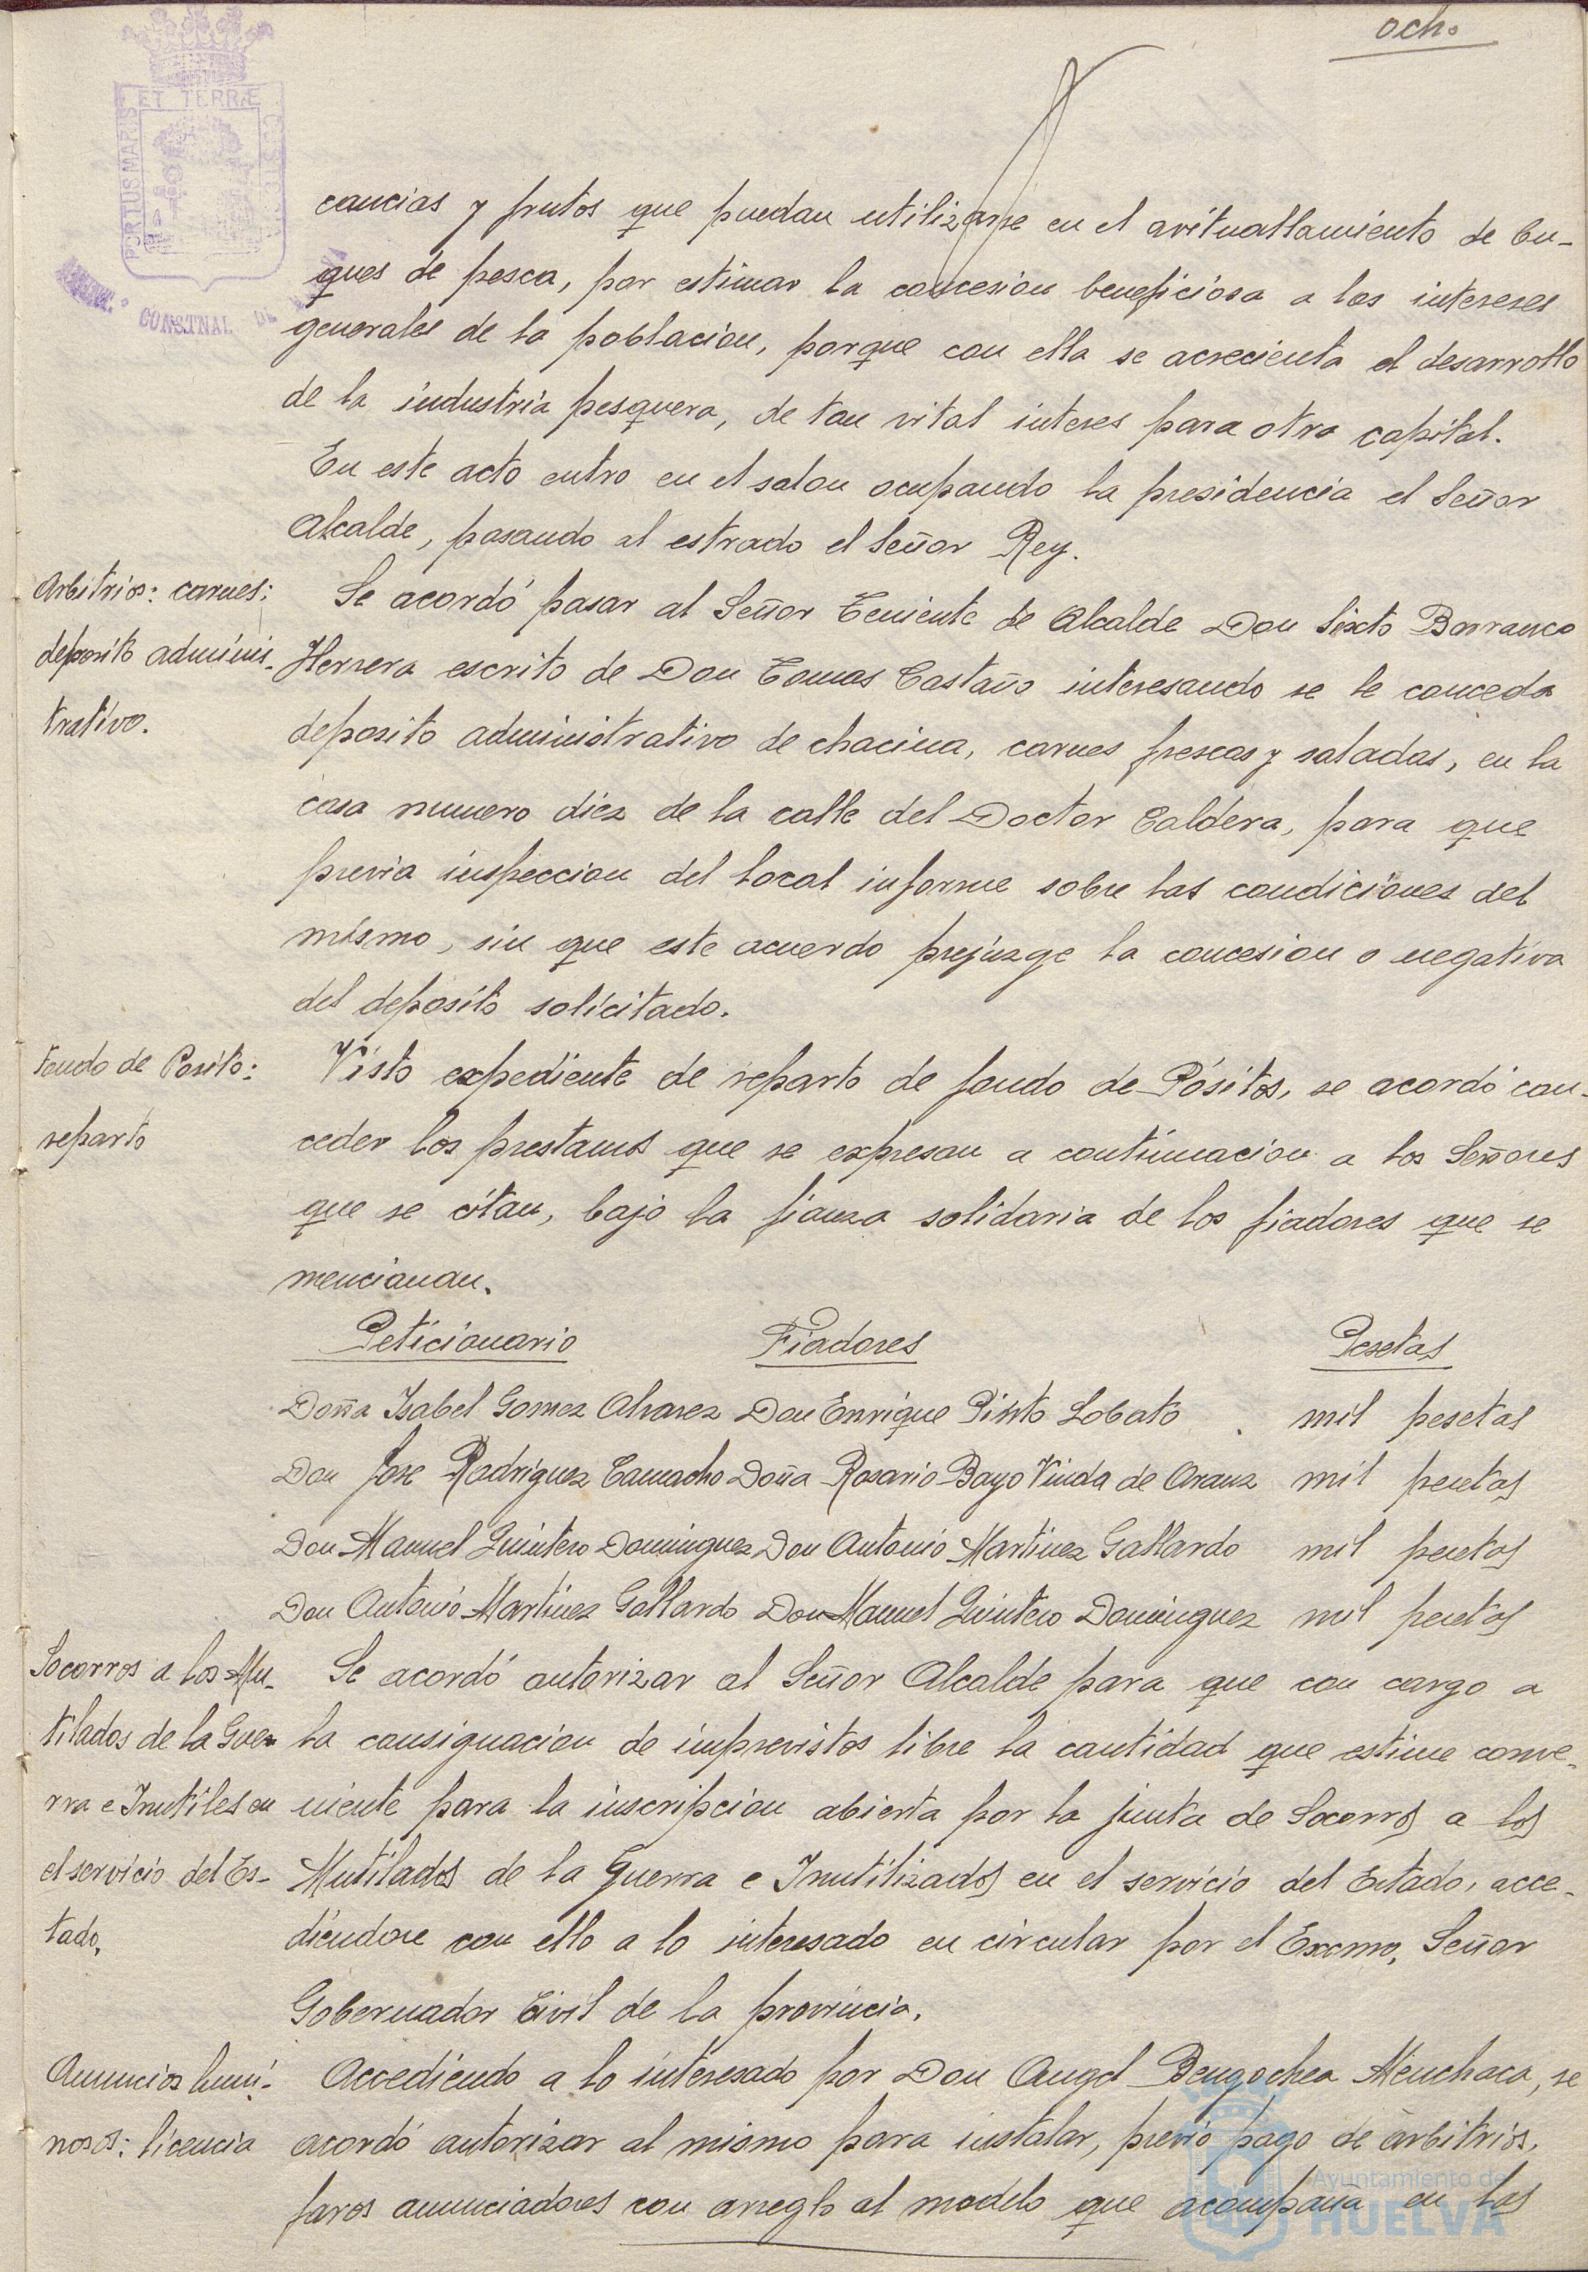 ocho
PORTUS MARIS ET TERRÆ CUSTO
CONSTNAL DE
cancias y frutos que puedan utilizarse en el avituallamiento de bu-
ques de pesca, por estimar la concesion beneficiosa a los intereses
generales de la poblacion, porque con ella se acrecienta el desarrollo
de la industria pesquera, de tan vital interes para otra capital.
En este acto entro en el salon ocupando la presidencia el Señor
Alcalde, pasando al estrado el Señor Rey.
Arbitrios: carnes:
deposito adminis-
trativo.
Se acordó pasar al Señor Teniente de Alcalde Don Sixto Barranco
Herrera escrito de Don Tomas Castaño interesando se le conceda
deposito administrativo de chacina, carnes frescas y saladas, en la
casa numero diez de la calle del Doctor Caldera, para que
previa inspeccion del local informe sobre las condiciones del
mismo, sin que este acuerdo prejuzge la concesion o negativa
del deposito solicitado.
Fondo de Posito:
reparto
Visto expediente de reparto de fondo de Pósitos, se acordó con-
ceder los prestamos que se expresan a continuacion a los Señores
que se citan, bajo la fianza solidaria de los fiadores que se
mencionan.
Peticionario Fiadores Pesetas
Doña Isabel Gomez Alvarez Don Enrique Pinto Lobato mil pesetas
Don Jose Rodriguez Camacho Doña Rosario Bayo Viuda de Arauz mil pesetas
Don Manuel Quintero Dominguez Don Antonio Martinez Gallardo mil pesetas
Don Antonio Martinez Gallardo Don Manuel Quintero Dominguez mil pesetas
Socorros a los Mu-
tilados de la Gue-
rra e Inutiles en
el servicio del Es-
tado.
Se acordó autorizar al Señor Alcalde para que con cargo a
la consignacion de imprevistos libre la cantidad que estime conve-
niente para la inscripcion abierta por la junta de Socorros a los
Mutilados de la Guerra e Inutilizados en el servicio del Estado, acce-
diendose con ello a lo interesado en circular por el Excmo. Señor
Gobernador Civil de la provincia.
Anuncios lumi-
nosos: licencia
Accediendo a lo interesado por Don Angel Bengochea Menchaca, se
acordó autorizar al mismo para instalar, previo pago de arbitrios,
faros anunciadores con arreglo al modelo que acompaña en los
Ayuntamiento de
HUELVA